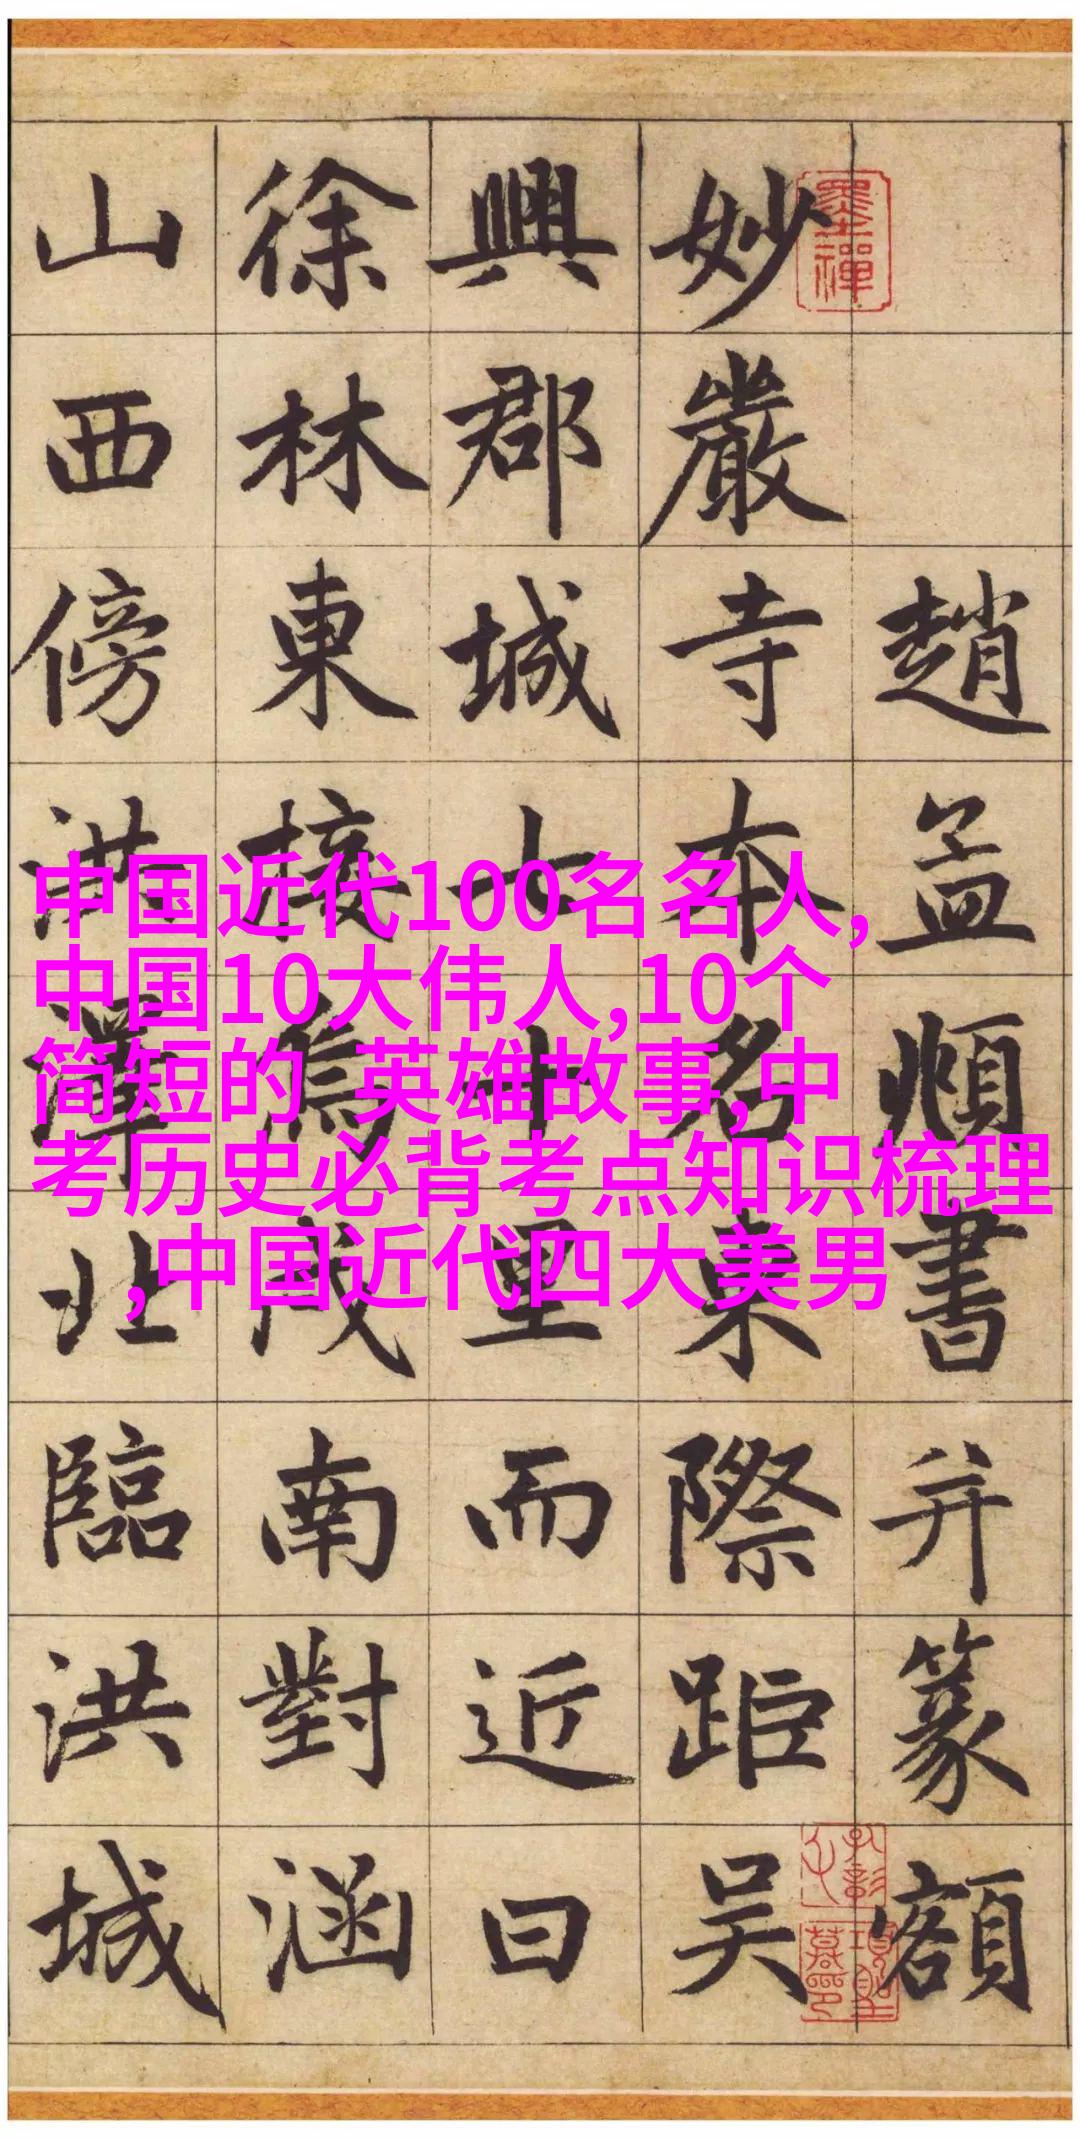 趙孟頫書并篆額
妙嚴寺本名東際距吳
興郡城七十里而近曰
徐林東接烏戍南對涵
山西傍洪澤北臨洪城
墨禪
中国近代100名名人,
中国10大伟人,10个
简短的 英雄故事,中
考历史必背考点知识梳理
,中国近代四大美男